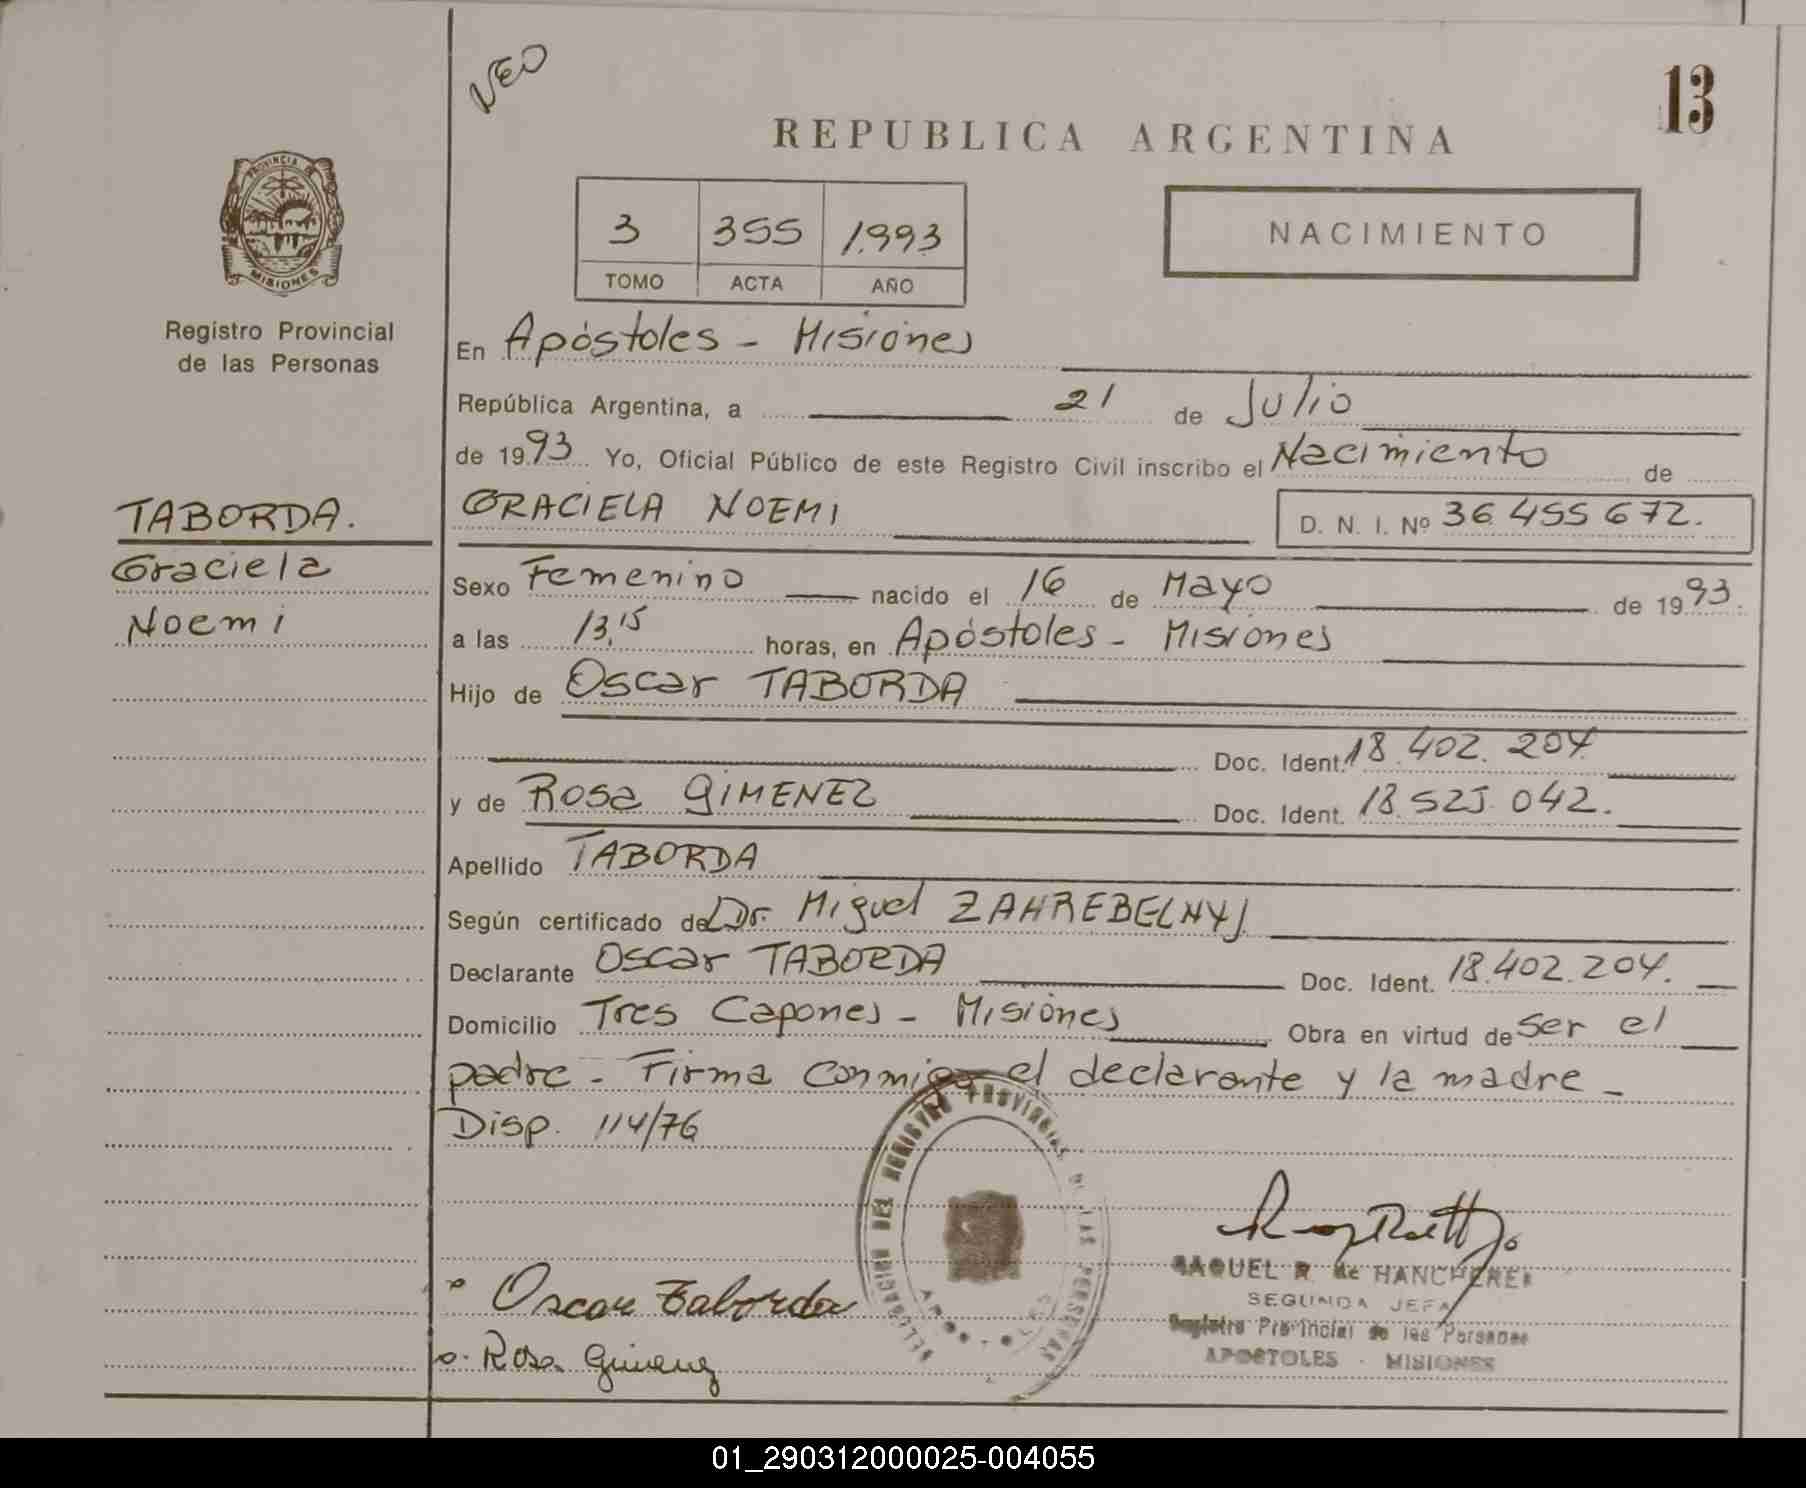 VEO
13
REPUBLICA ARGENTINA
PROVINCIA DE
MISIONES
Registro Provincial
de las Personas
3 355 1.993
TOMO ACTA AÑO
NACIMIENTO
En Apóstoles - Misiones
República Argentina, a 21 de Julio
de 1993 Yo, Oficial Público de este Registro Civil inscribo el Nacimiento de
GRACIELA NOEMI D. N. I. Nº 36.455 672.
TABORDA.
Graciela
Noemi
Sexo Femenino nacido el 16 de Mayo de 1993.
a las 13,15 horas, en Apóstoles - Misiones
Hijo de Oscar TABORDA
Doc. Ident. 18.402.204
y de Rosa GIMENEZ Doc. Ident. 18.525.042.
Apellido TABORDA
Según certificado de Dr. Miguel ZAHREBELNYJ
Declarante Oscar TABORDA Doc. Ident. 18.402.204.
Domicilio Tres Capones - Misiones Obra en virtud de ser el
padre - Firma conmigo el declarante y la madre -
Disp. 114/76
DELEGACION DEL REGISTRO PROVINCIAL DE LAS PERSONAS
Oscar Taborda
Rosa Gimenez
RAQUEL R. de HANCHEREK
SEGUNDA JEFA
Registro Provincial de las Personas
APOSTOLES - MISIONES
01_290312000025-004055